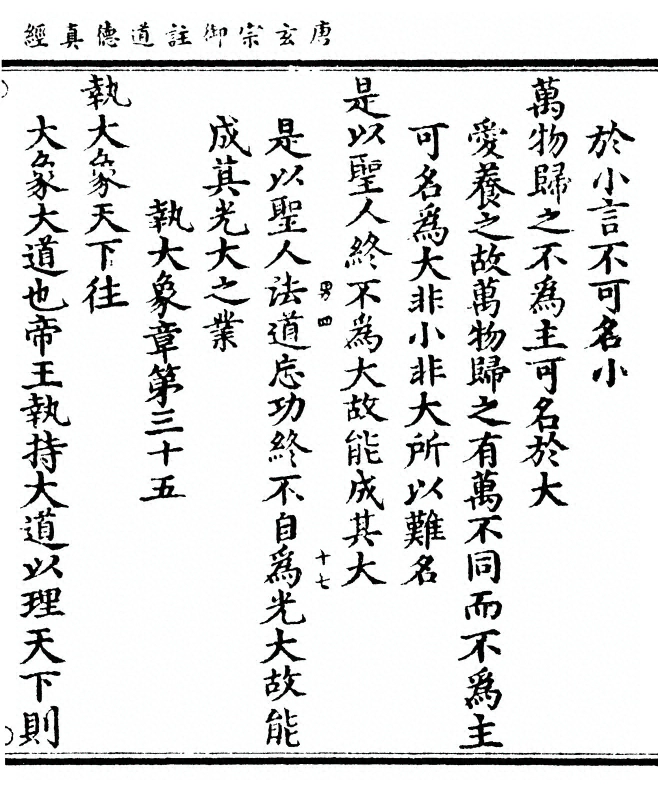 唐玄宗御註道德真經
於小言不可名小
萬物歸之不為主可名於大
愛養之故萬物歸之有萬不同而不為主
可名為大非小非大所以難名
是以聖人終不為大故能成其大
男四
十七
是以聖人法道忘功終不自為光大故能
成其光大之業
執大象章第三十五
執大象天下往
大象大道也帝王執持大道以理天下則